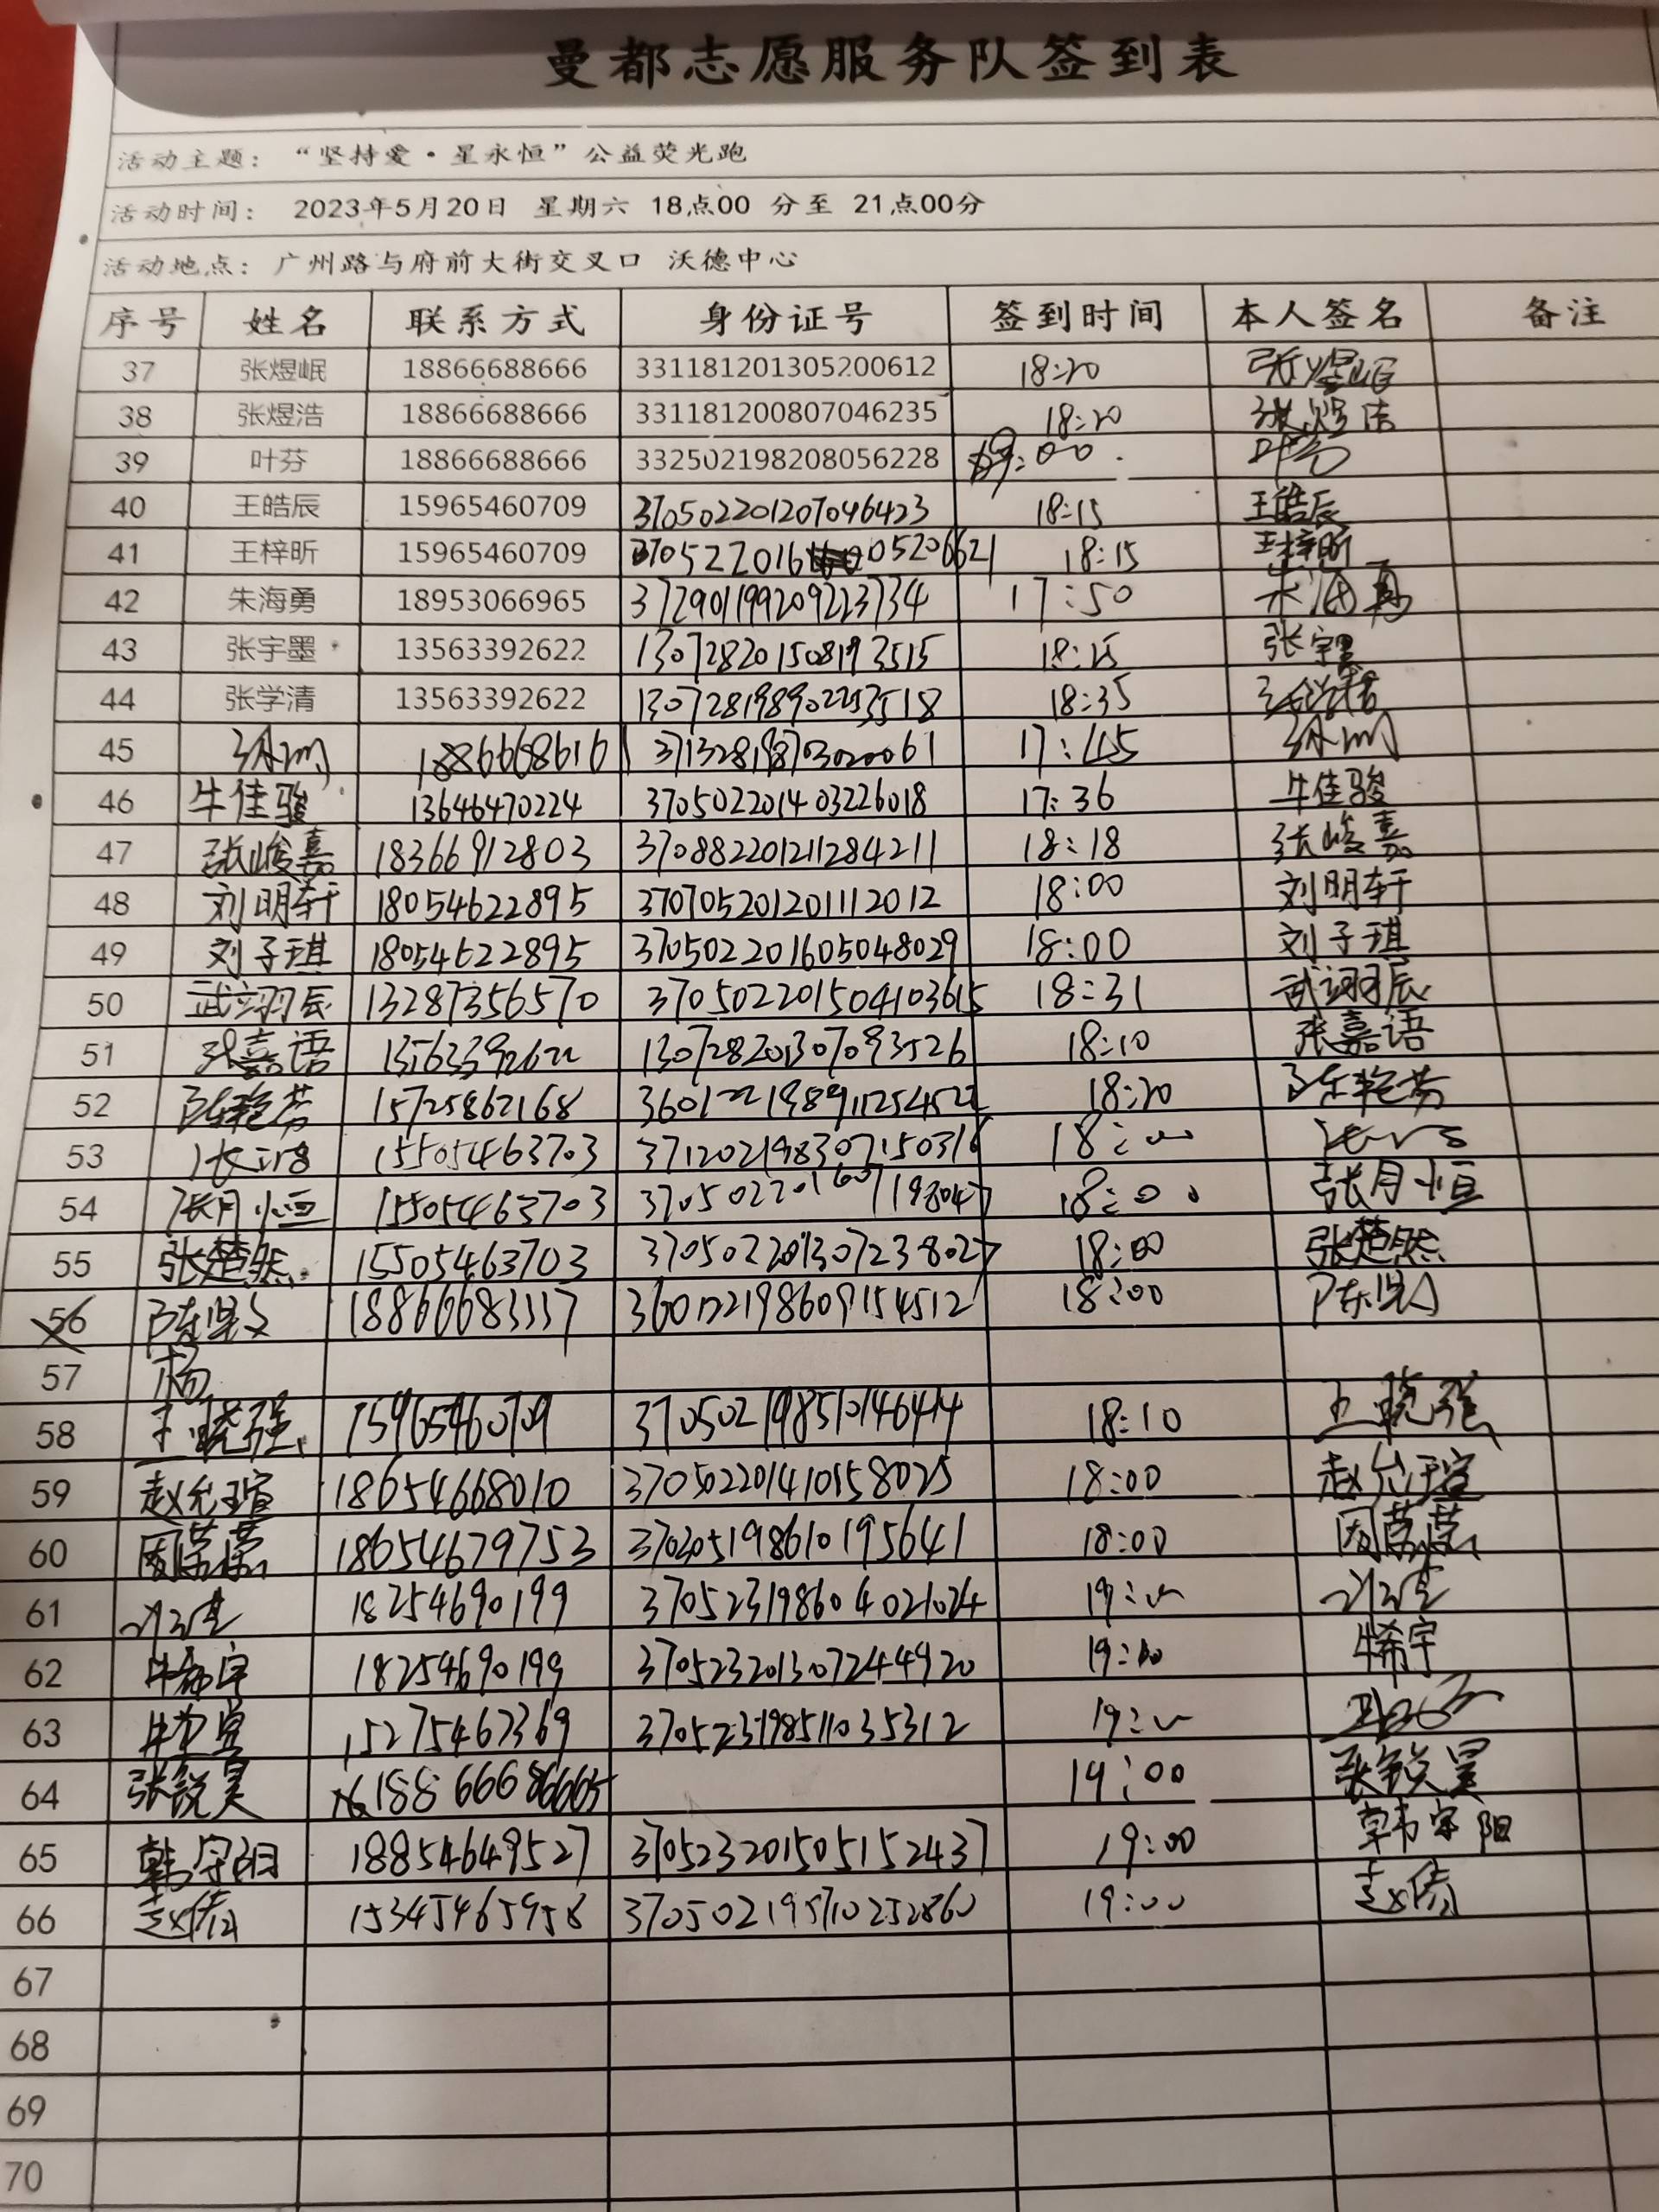 曼都志愿服务队签到表
活动主题： “坚持爱·星永恒”公益荧光跑
活动时间： 2023年5月20日 星期六 18点00 分至 21点00分
活动地点： 广州路与府前大街交叉口 沃德中心
序号 姓名 联系方式 身份证号 签到时间 本人签名 备注
37 张煜岷 18866688666 331181201305200612 18:20 张煜岷
38 张煜浩 18866688666 331181200807046235 18:20 张煜浩
39 叶芬 18866688666 332502198208056228 叶芬
40 王皓辰 15965460709 370502201207046423 18:15 王皓辰
41 王梓昕 15965460709 18:15 王梓昕
42 朱海勇 18953066965 372901199209223734 17:50 朱海勇
43 张宇墨 13563392622 130728201508193515 18:15 张宇墨
44 张学清 13563392622 130728198902253518 18:35 张学清
45 18866686161 371328198703020061 17:45
46 牛佳骏 13646470224 370502201403226018 17:36 牛佳骏
47 张峻嘉 18366912803 370882201211284211 18:18 张峻嘉
48 刘明轩 18054622895 370705201201112012 18:00 刘明轩
49 刘子琪 18054622895 370502201605048029 18:00 刘子琪
50 武翊辰 13287356570 370502201504103615 18:31 武翊辰
51 张嘉语 13563392622 130728201307093526 18:10 张嘉语
52 陈艳芳 15725862168 360122198911254522 18:20 陈艳芳
53 15505463703 371202198307150316 18:00
54 张月恒 15505463703 370502201607198047 18:00 张月恒
55 张楚然 15505463703 370502201307238027 18:00 张楚然
56 18866683337 360122198609154512 18:00
57 杨
58 王晓强 15965460709 370502198510146414 18:10 王晓强
59 赵允瑄 18654668010 370502201410158025 18:00 赵允瑄
60 周荣荣 18654679753 370305198610195641 18:00 周荣荣
61 18254690199 370523198604021024 19:00
62 牛希宇 18254690199 370523201307244920 19:00 牛希宇
63 15275467369 370523198511035312 19:00
64 张锐昊 19:00 张锐昊
65 韩宇阳 18854649527 370523201505152437 19:00 韩宇阳
66 15345465958 370502195710252860 19:00
67
68
69
70